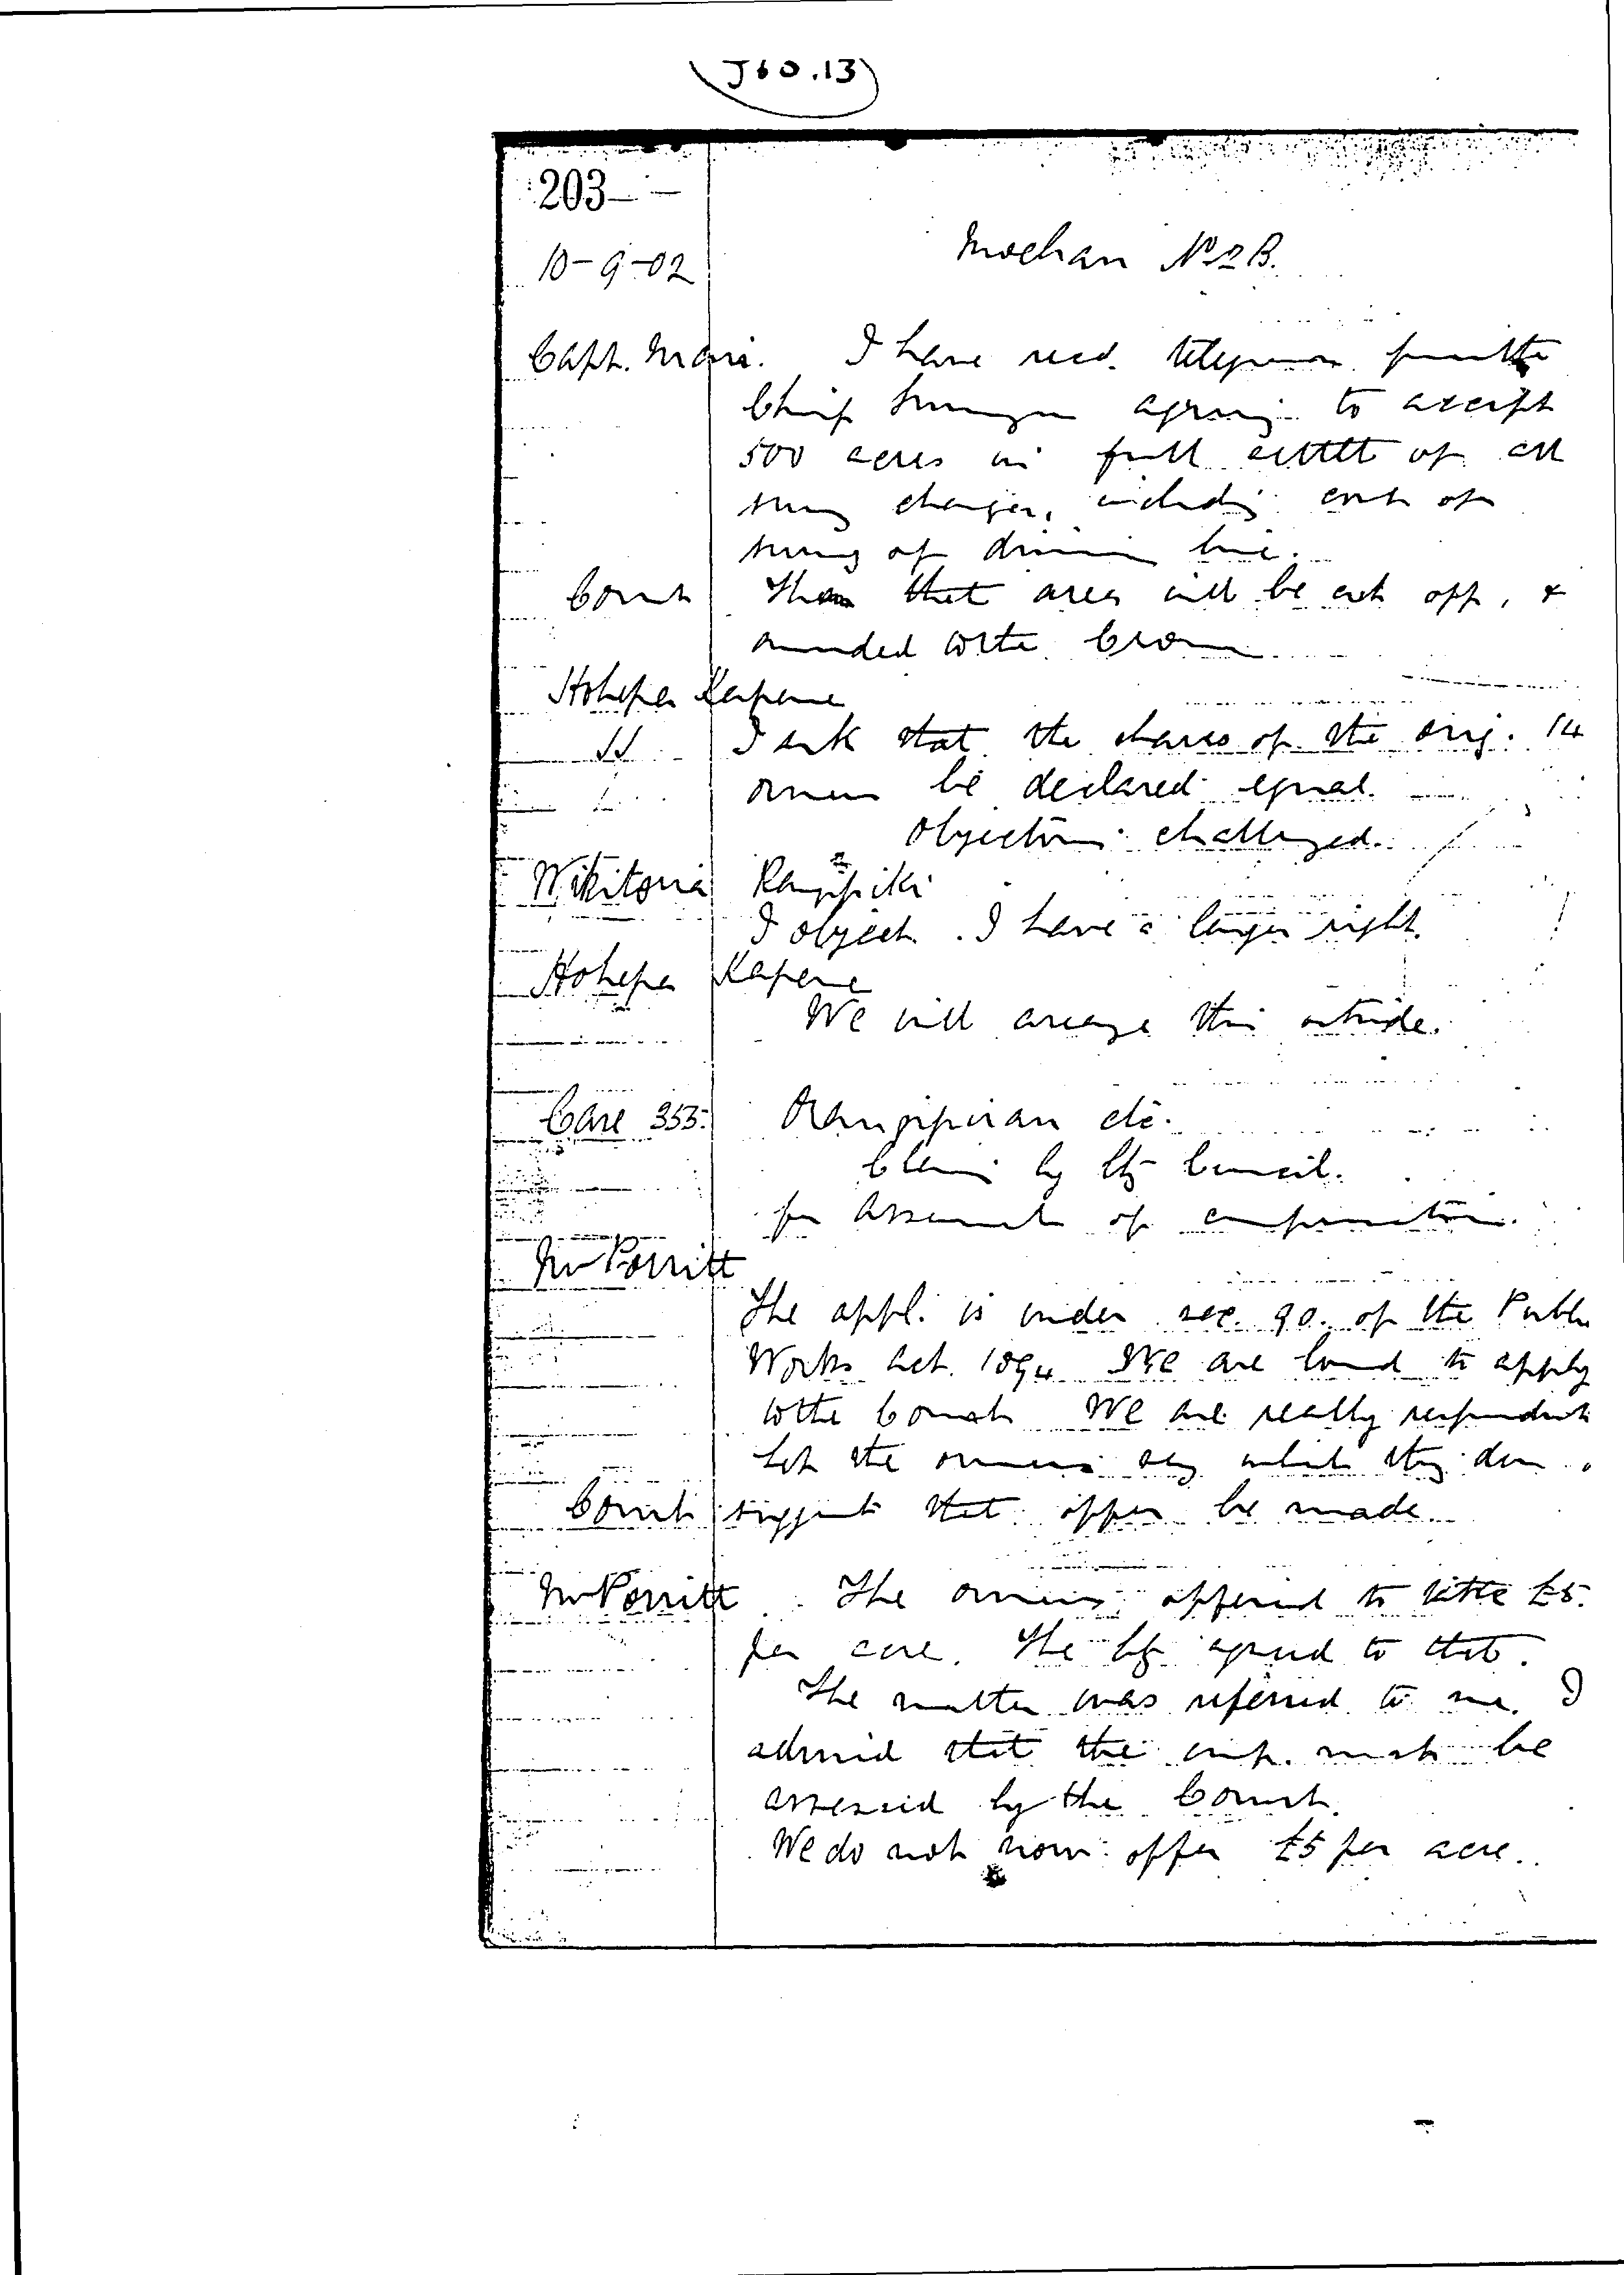 J60.13
203
10-9-02 Moehau No 2B.
Capt. Mair. I have recd. telegram from the
Chief Surveyor agreeing to accept
500 acres in full settlt of all
survey charges, including cost of
survey of division line.
Court Then that area will be cut off, &
awarded to the Crown
Hohepa Kapene
I ask that the shares of the orig. 14
owners be declared equal.
Objectors challenged.
Wikitoria Rangipiki
I object. I have a larger right.
Hohepa Kapene
We will arrange this outside.
Case 353. etc.
Claim by Cty Council.
for Assessment of compensation.
Mr Porritt
The appl. is under sec. 90. of the Public
Works Act. 1894 We are bound to apply
to the Court We are really respondents
Let the owners say what they
Court suggests that offer be made.
Mr Porritt The owners offered to take £5.
per acre. The Cty agreed to that.
The matter was referred to me. I
advised that the comp. must be
assessed by the Court.
We do not now offer £5 per acre.